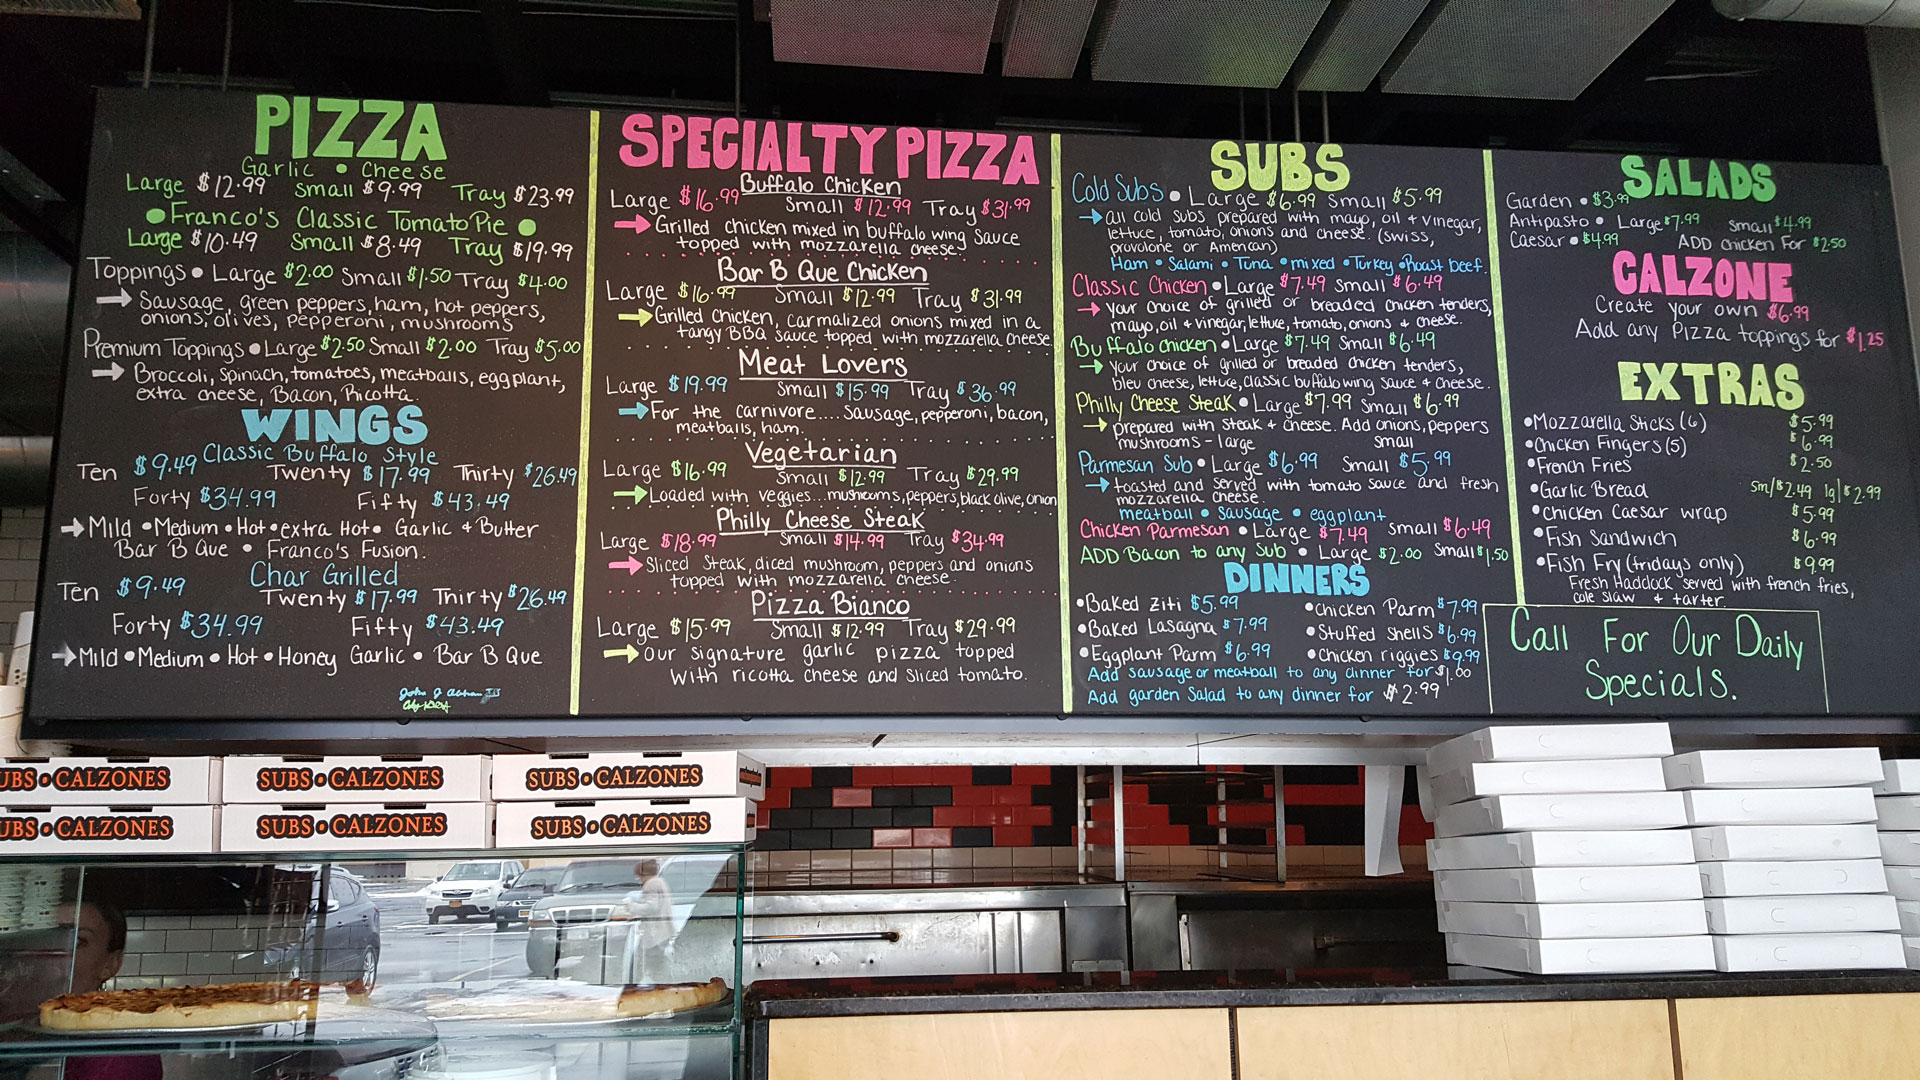 PIZZA
Garlic • Cheese
Large $12.99 Small $9.99 Tray $23.99
• Franco's Classic Tomato Pie •
Large $10.49 Small $8.49 Tray $19.99
Toppings • Large $2.00 Small $1.50 Tray $4.00
→ Sausage, green peppers, ham, hot peppers,
onions, olives, pepperoni, mushrooms
Premium Toppings • Large $2.50 Small $2.00 Tray $5.00
→ Broccoli, spinach, tomatoes, meatballs, eggplant,
extra cheese, Bacon, Ricotta.
WINGS
Classic Buffalo Style
Ten $9.49 Twenty $17.99 Thirty $26.49
Forty $34.99 Fifty $43.49
→ Mild • Medium • Hot • extra Hot • Garlic & Butter
Bar B Que • Franco's Fusion.
Char Grilled
Ten $9.49 Twenty $17.99 Thirty $26.49
Forty $34.99 Fifty $43.49
→ Mild • Medium • Hot • Honey Garlic • Bar B Que
SPECIALTY PIZZA
Buffalo Chicken
Large $16.99 Small $12.99 Tray $31.99
→ Grilled chicken mixed in buffalo wing sauce
topped with mozzarella cheese.
Bar B Que Chicken
Large $16.99 Small $12.99 Tray $31.99
→ Grilled chicken, carmalized onions mixed in a
tangy BBQ sauce topped with mozzarella cheese
Meat Lovers
Large $19.99 Small $15.99 Tray $36.99
→ For the carnivore.... sausage, pepperoni, bacon,
meatballs, ham.
Vegetarian
Large $16.99 Small $12.99 Tray $29.99
→ Loaded with veggies... mushrooms, peppers, black olive, onion
Philly Cheese Steak
Large $18.99 Small $14.99 Tray $34.99
→ Sliced steak, diced mushroom, peppers and onions
topped with mozzarella cheese.
Pizza Bianco
Large $15.99 Small $12.99 Tray $29.99
→ Our signature garlic pizza topped
with ricotta cheese and sliced tomato.
SUBS
Cold Subs • Large $6.99 Small $5.99
→ all cold subs prepared with mayo, oil & vinegar,
lettuce, tomato, onions and cheese. (swiss,
provolone or American)
Ham • Salami • Tuna • mixed • Turkey • Roast beef.
Classic Chicken • Large $7.49 Small $6.49
→ your choice of grilled or breaded chicken tenders,
mayo, oil & vinegar, lettuce, tomato, onions & cheese.
Buffalo Chicken • Large $7.49 Small $6.49
→ your choice of grilled or breaded chicken tenders,
bleu cheese, lettuce, classic buffalo wing sauce & cheese.
Philly Cheese Steak • Large $7.99 Small $6.99
→ prepared with steak & cheese. Add onions, peppers
mushrooms - large small
Parmesan Sub • Large $6.99 Small $5.99
→ toasted and served with tomato sauce and fresh
mozzarella cheese.
meatball • sausage • eggplant
Chicken Parmesan • Large $7.49 Small $6.49
ADD Bacon to any Sub • Large $2.00 Small $1.50
DINNERS
• Baked Ziti $5.99 • Chicken Parm $7.99
• Baked Lasagna $7.99 • Stuffed Shells $6.99
• Eggplant Parm $6.99 • Chicken riggies $9.99
Add sausage or meatball to any dinner for $1.00
Add garden salad to any dinner for $2.99
SALADS
Garden • $3.99
Antipasto • Large $7.99 Small $4.99
Caesar • $4.99 ADD chicken For $2.50
CALZONE
Create your own $6.99
Add any Pizza toppings for $1.25
EXTRAS
• Mozzarella Sticks (6) $5.99
• Chicken Fingers (5) $6.99
• French Fries $2.50
• Garlic Bread sm/$2.49 lg/$2.99
• Chicken Caesar wrap $5.99
• Fish Sandwich $6.99
• Fish Fry (fridays only) $9.99
Fresh Haddock served with french fries,
cole slaw & tarter.
Call For Our Daily
Specials.
UBS • CALZONES
SUBS • CALZONES
SUBS • CALZONES
UBS • CALZONES
SUBS • CALZONES
SUBS • CALZONES